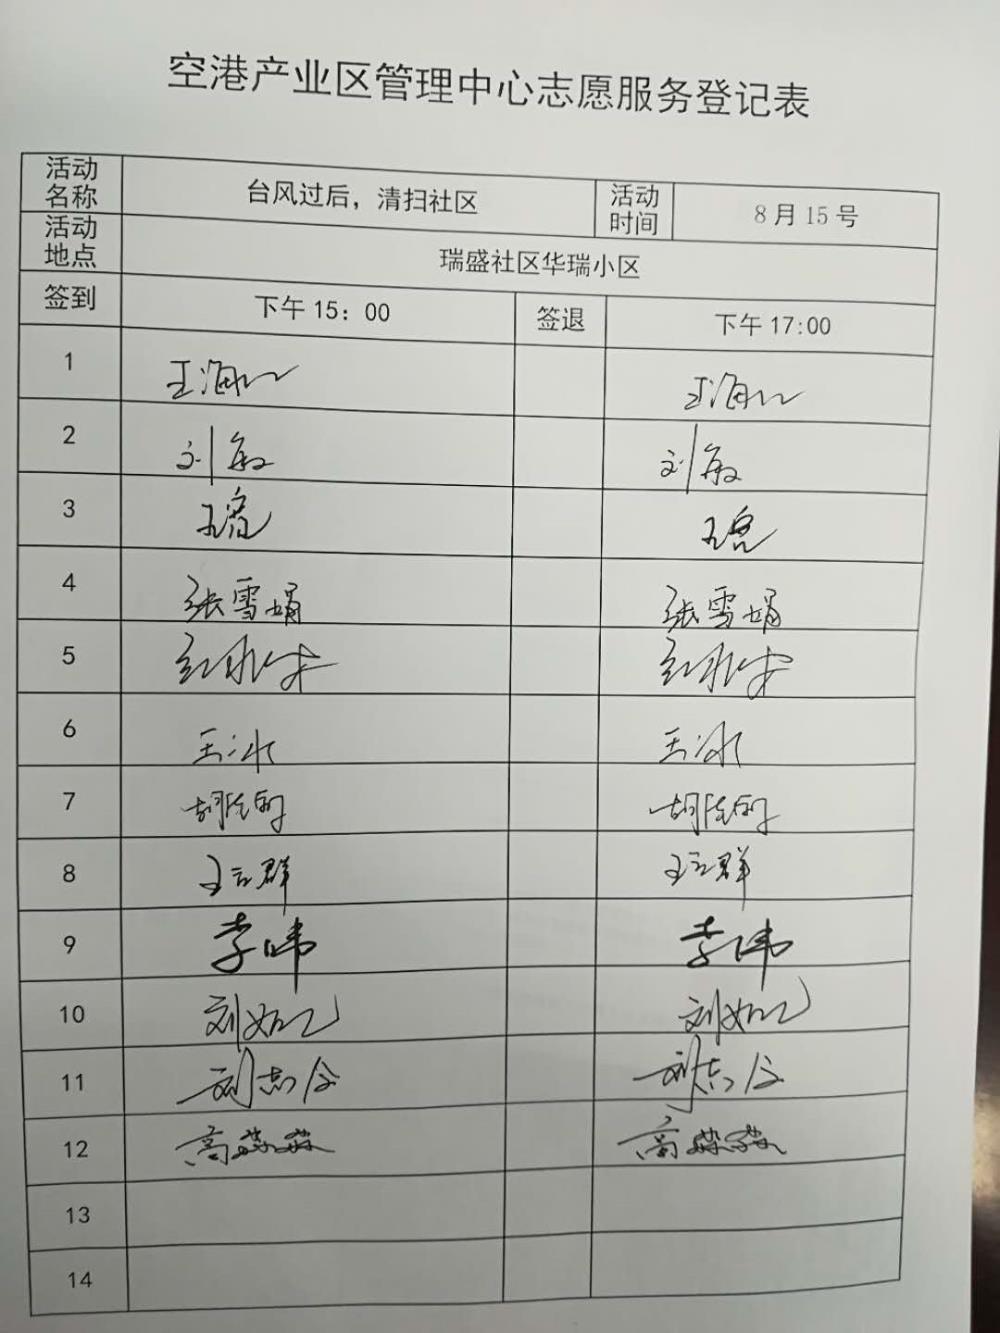 空港产业区管理中心志愿服务登记表
活动名称 台风过后，清扫社区 活动时间 8月15号
活动地点 瑞盛社区华瑞小区
签到 下午15：00 签退 下午17:00
1 王海 王海
2 刘敏 刘敏
3
4 张雪娟 张雪娟
5
6 王冰 王冰
7 胡 胡
8 王云群 王云群
9 李 李
10 刘如 刘如
11 刘志 刘志
12 高 高
13
14